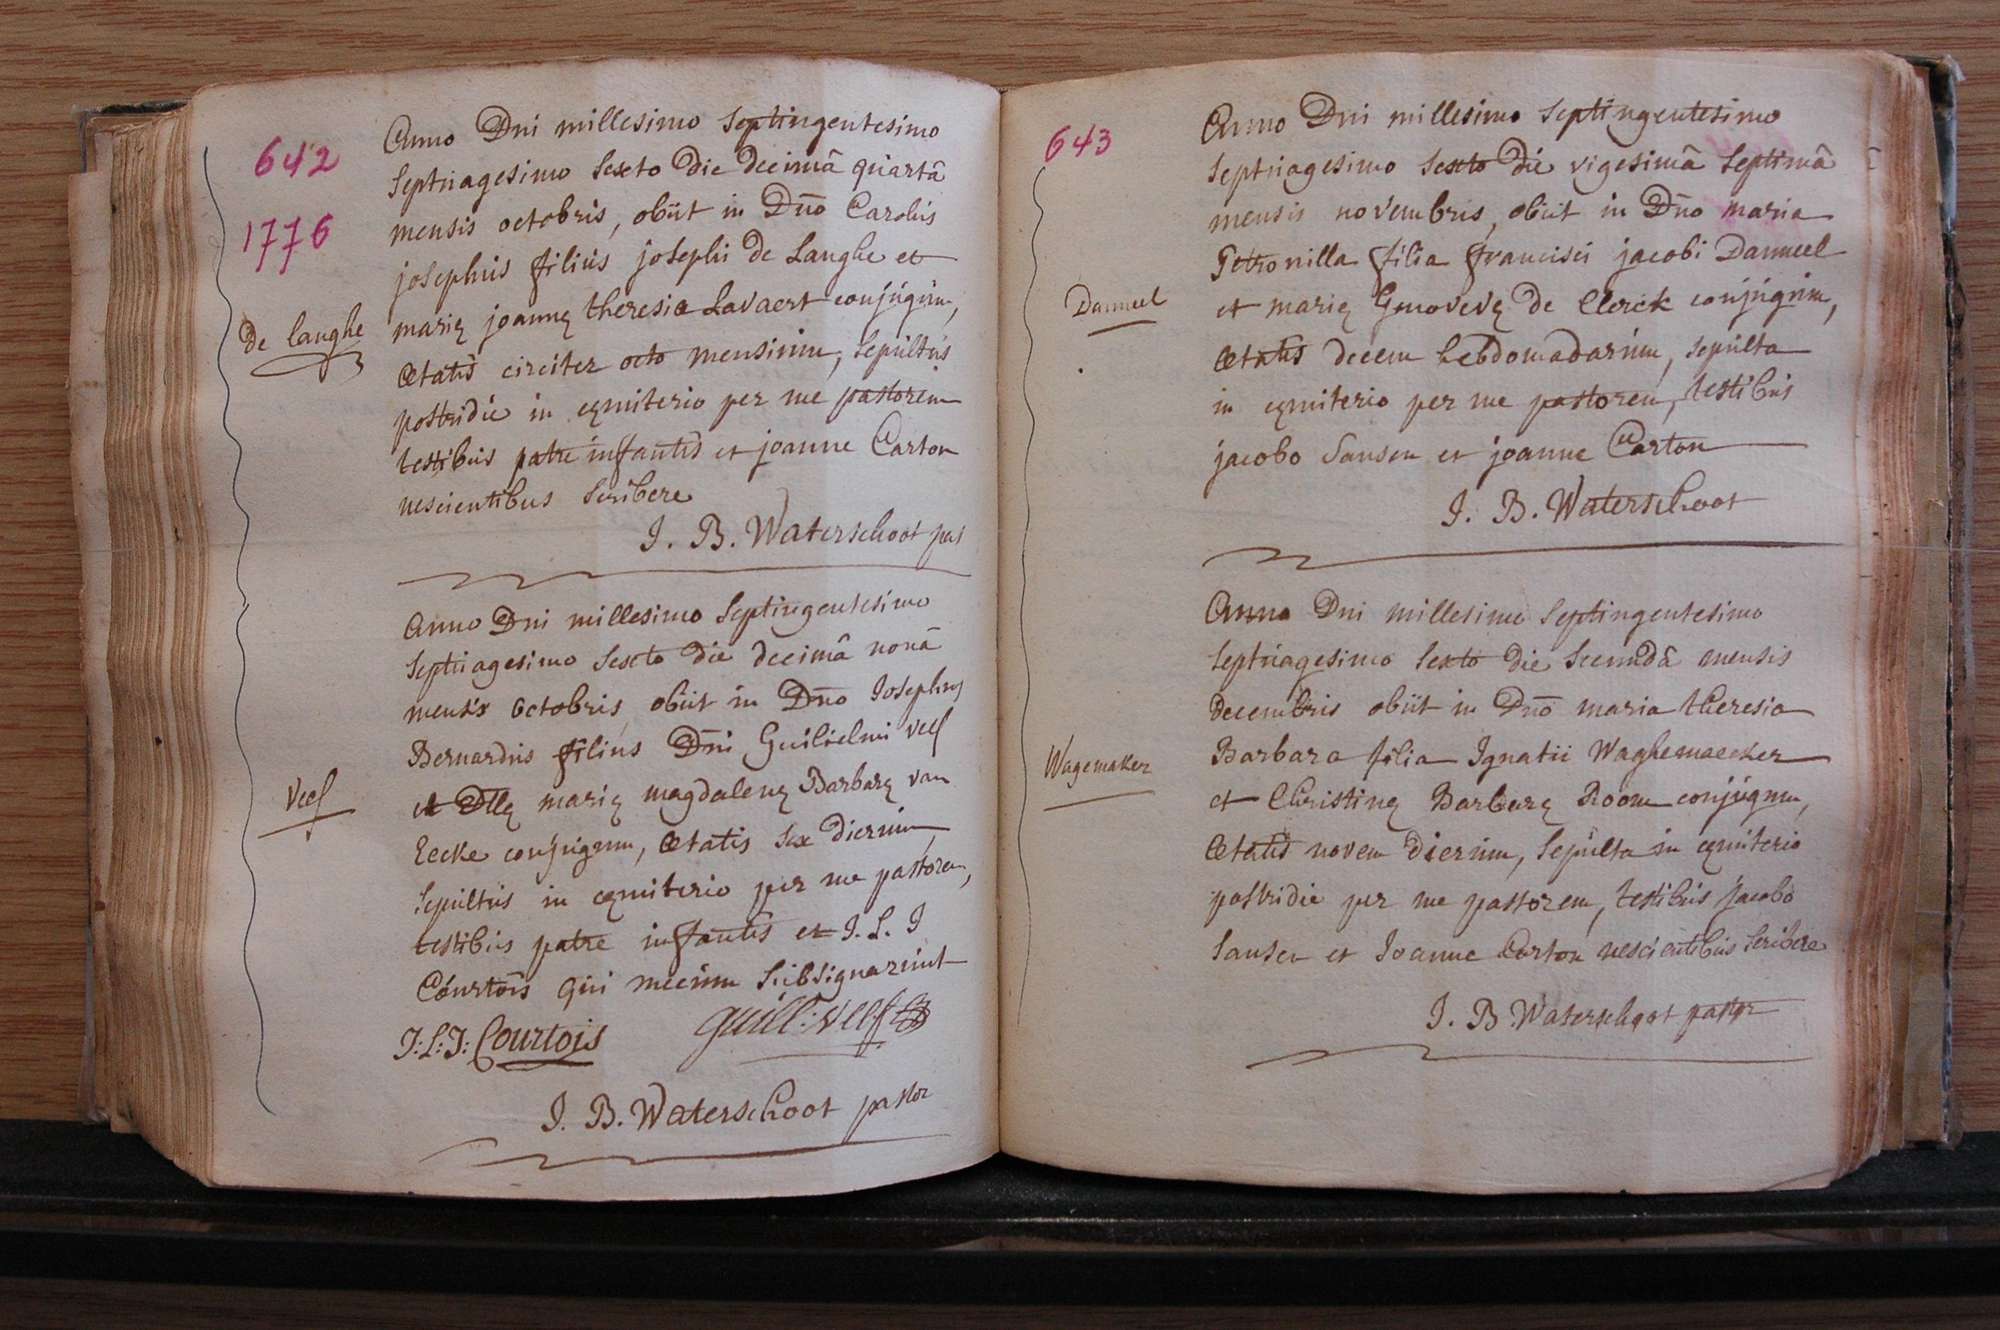 642
1776
Anno Dni millesimo Septingentesimo
Septuagesimo Sexto die decimâ quartâ
mensis octobris, obiit in Dno Carolus
josephus filius josephi de Langhe et
de langhe
marię joannę theresiæ Lavaert conjugum,
Ætatis circiter octo mensium, sepultus
postridie in cęmiterio per me pastorem
testibus patre infantis et joanne Carton
nescientibus scribere
J. B. Waterschoot pas
Anno Dni millesimo Septingentesimo
Septuagesimo Sexto die decimâ nonâ
mensis octobris, obiit in Dno Josephus
Bernardus filius Dni Guilielmi Veel
Veel
et Dllę marię magdalenę Barbarę van
Eecke conjugum, Ætatis sex dierum,
Sepultus in cęmiterio per me pastorem,
testibus patre infantis et J. L. J
Courtois qui mecum subsignarunt
J: L: J: Courtois guill: Veel
J. B. Waterschoot pastor
643
Anno Dni millesimo Septingentesimo
Septuagesimo Sexto die vigesimâ Septimâ
mensis novembris, obiit in Dno maria
Petronilla filia francisci jacobi Danneel
Danneel
et marię Genovevę de Clerck conjugum,
Ætatis decem hebdomadarum, sepulta
in cęmiterio per me pastorem, testibus
jacobo Sansen et joanne Carton
J. B. Waterschoot
Anno Dni millesimo Septingentesimo
Septuagesimo Sexto die Secundâ mensis
decembris obiit in Dno maria theresia
Barbara filia Ignatii Waghemaecker
Wagemaker
et Christinę Barbarę Room conjugum,
Ætatis novem dierum, Sepulta in cęmiterio
postridie per me pastorem, testibus Jacobo
Sansen et Joanne Carton nescientibus scribere
J. B Waterschoot pastor